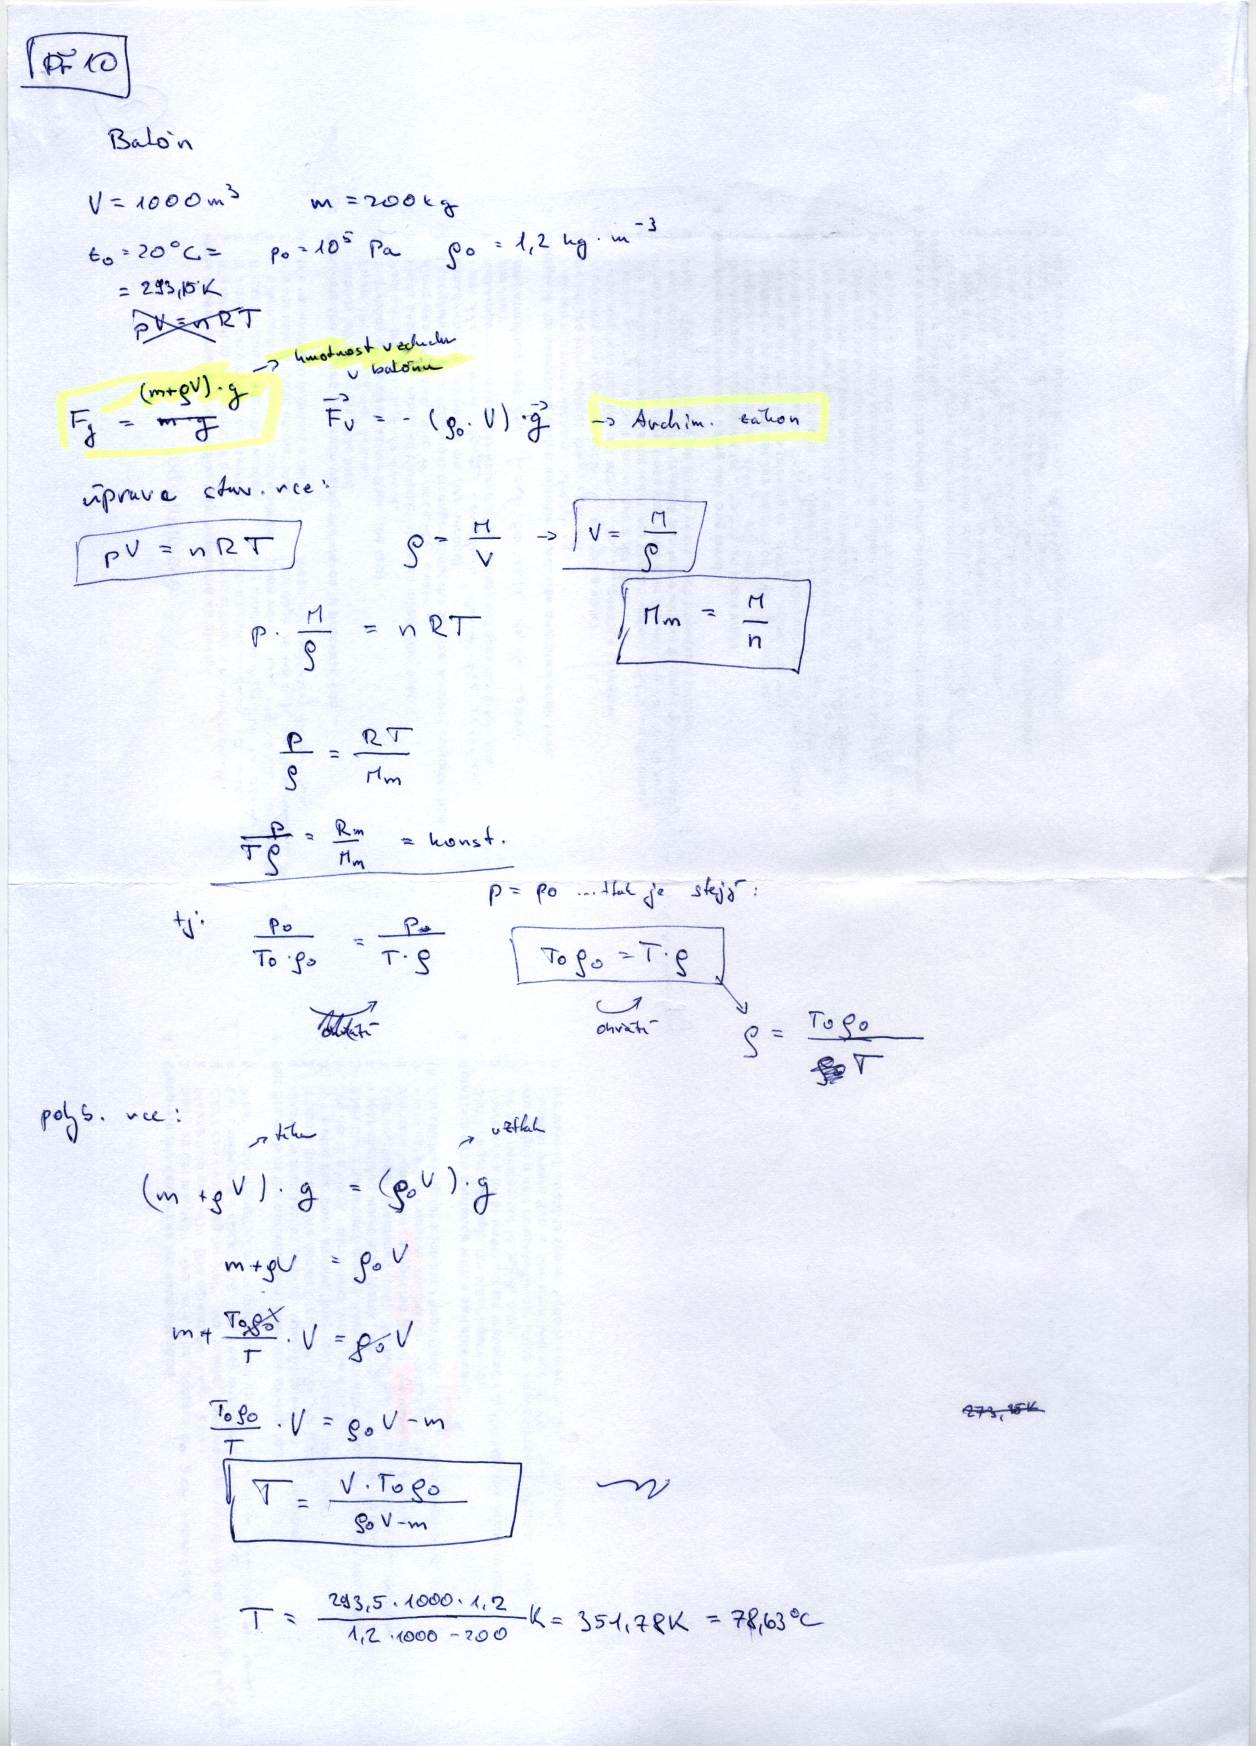 PŘ 10
Balón
V = 1000 m³ m = 200 kg
t₀ = 20°C = p₀ = 10⁵ Pa ρ₀ = 1,2 kg · m⁻³
= 293,15 K
pV = nRT
→ hmotnost vzduchu
v balónu
(m+ρV) · g
F_g = m g F⃗_v = - (ρ₀ · V) · g⃗ → Archim. zákon
úprava stav. rce:
pV = nRT ρ = M/V → V = M/ρ
p · M/ρ = nRT M_m = M/n
p/ρ = RT/M_m
p/(Tρ) = R_m/M_m = konst.
p = p₀ ... tlak je stejý:
tj: p₀/(T₀·ρ₀) = p₀/(T·ρ) T₀ρ₀ = T·ρ
ohřátí ohřátí
ρ = T₀ρ₀/T
pohyb. rce:
→ tíha → vztlak
(m + ρV) · g = (ρ₀V) · g
m + ρV = ρ₀V
m + T₀ρ₀/T · V = ρ₀V
T₀ρ₀/T · V = ρ₀V - m
273,15K
T = V · T₀ρ₀/(ρ₀V - m)
T = (293,5 · 1000 · 1,2)/(1,2 · 1000 - 200) K = 351,78K = 78,63°C